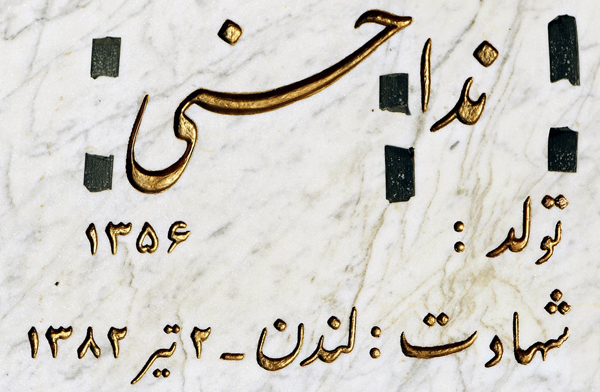 ندا حسنی
تولد : ۱۳۵۶
شهادت : لندن - ۲ تیر ۱۳۸۲